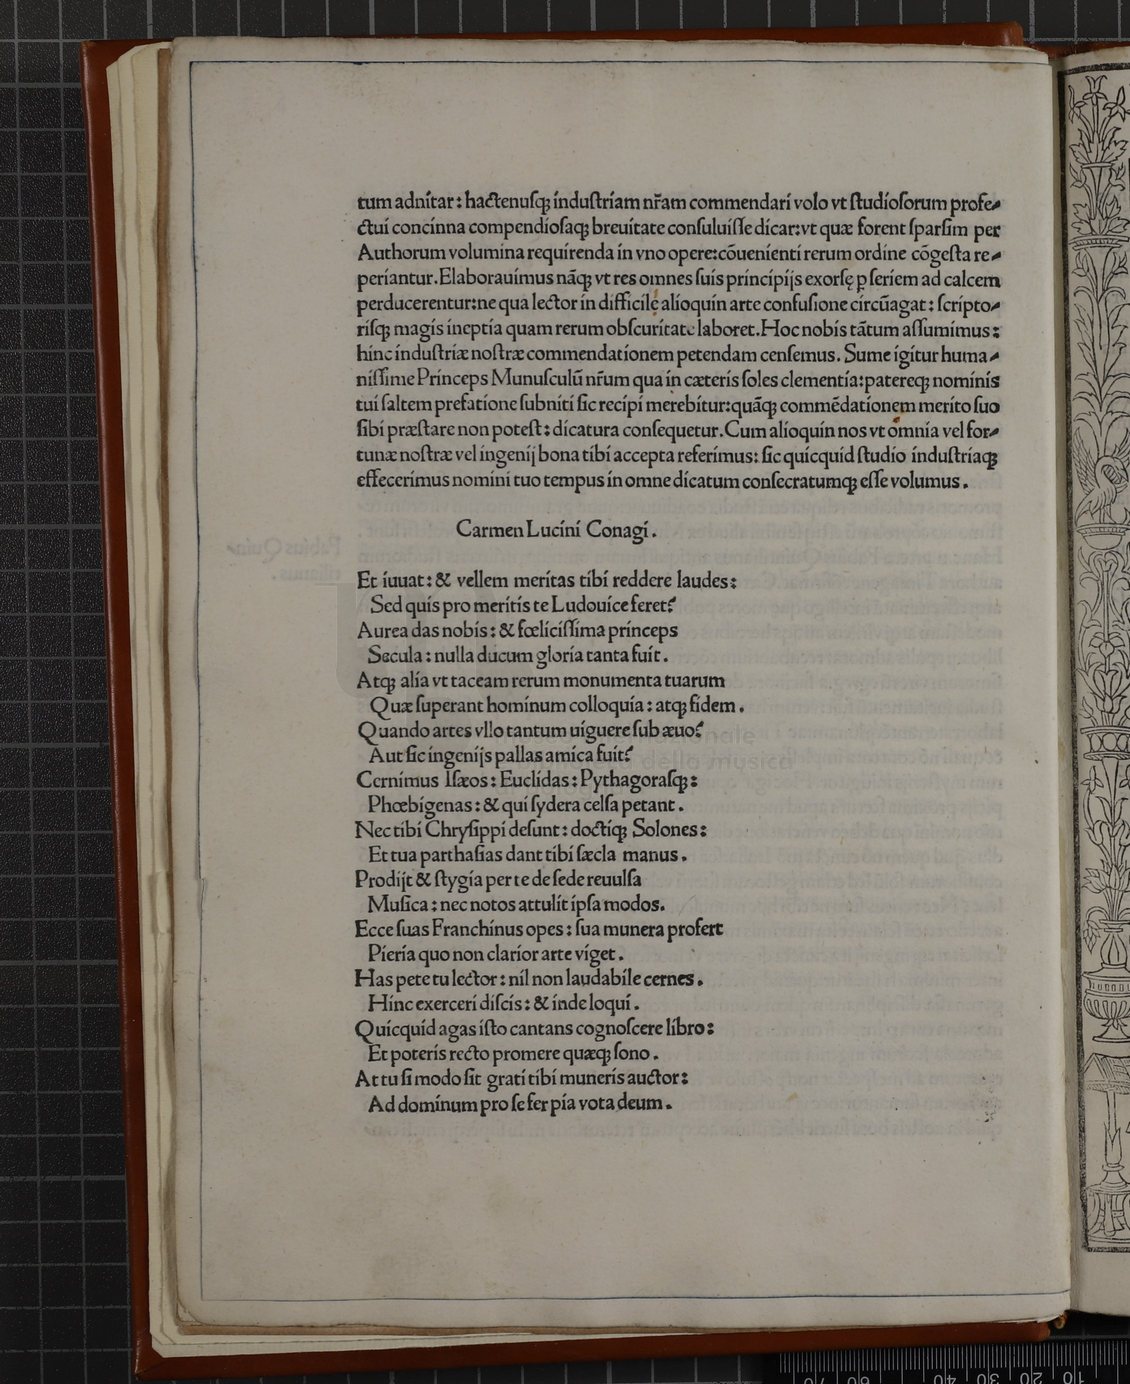 tum adnitar: hactenusq; industriam nr̃am commendari volo vt studiosorum profe-
ctui concinna compendiosaq; breuitate consuluisse dicar: vt quæ forent sparsim per
Authorum volumina requirenda in vno opere: cõuenienti rerum ordine cõgesta re-
periantur. Elaborauimus nãq; vt res omnes suis principijs exorsę ꝑ seriem ad calcem
perducerentur: ne qua lector in difficile alioquin arte confusione circũagat: scripto-
risq; magis ineptia quam rerum obscuritate laboret. Hoc nobis tãtum assumimus:
hinc industriæ nostræ commendationem petendam censemus. Sume igitur huma-
nissime Princeps Munusculũ nr̃um qua in cæteris soles clementia: patereq; nominis
tui saltem prefatione subniti sic recipi merebitur: quãq; commẽdationem merito suo
sibi præstare non potest: dicatura consequetur. Cum alioquin nos vt omnia vel for-
tunæ nostræ vel ingenij bona tibi accepta referimus: sic quicquid studio industriaq;
effecerimus nomini tuo tempus in omne dicatum consecratumq; esse volumus.
Carmen Lucini Conagi.
Et iuuat: & vellem meritas tibi reddere laudes:
Sed quis pro meritis te Ludouice feret?
Aurea das nobis: & fœlicissima princeps
Secula: nulla ducum gloria tanta fuit.
Atq; alia vt taceam rerum monumenta tuarum
Quæ superant hominum colloquia: atq; fidem.
Quando artes vllo tantum uiguere sub æuo?
Aut sic ingenijs pallas amica fuit?
Cernimus Isæos: Euclidas: Pythagorasq;:
Phœbigenas: & qui sydera celsa petant.
Nec tibi Chrysippi desunt: doctiq; Solones:
Et tua parthasias dant tibi sæcla manus.
Prodijt & stygia per te de sede reuulsa
Musica: nec notos attulit ipsa modos.
Ecce suas Franchinus opes: sua munera profert
Pieria quo non clarior arte viget.
Has pete tu lector: nil non laudabile cernes.
Hinc exerceri discis: & inde loqui.
Quicquid agas isto cantans cognoscere libro:
Et poteris recto promere quæq; sono.
At tu si modo sit grati tibi muneris auctor:
Ad dominum pro se fer pia vota deum.